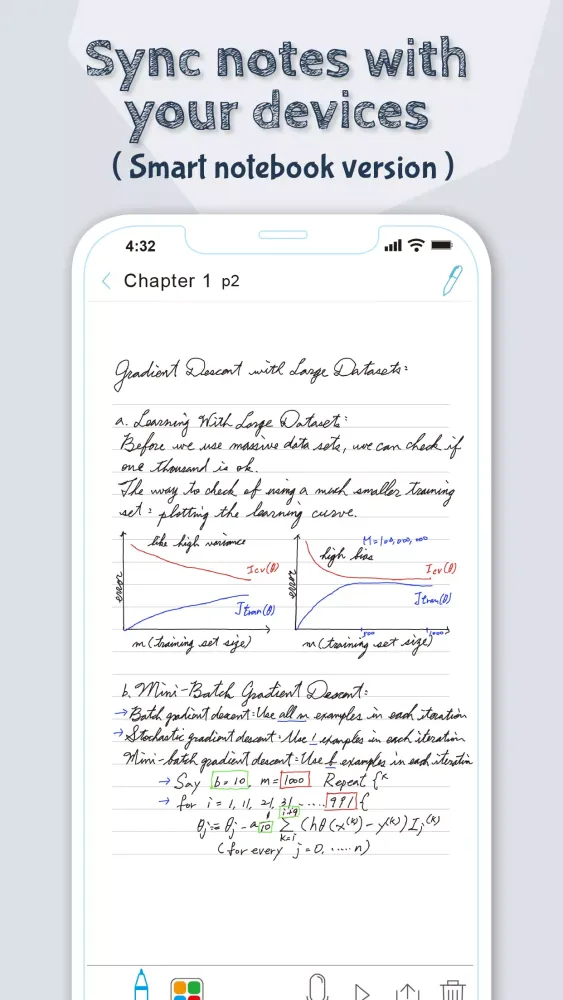 Sync notes with
your devices
( Smart notebook version )
4:32
Chapter 1 p2
Gradient Descent with Large Datasets:
a. Learning With Large Datasets:
Before we use massive data sets, we can check if
one thousand is ok.
The way to check of using a much smaller training
set: plotting the learning curve.
like high variance
error
Jcv(θ)
Jtran(θ)
m (training set size)
M=100,000,000
high bias
error
Jcv(θ)
Jtran(θ)
500 1000
m (training set size)
b. Mini-Batch Gradient Descent:
→ Batch gradient descent: Use all m examples in each iteration
→ Stochastic gradient descent: Use 1 examples in each iteration
Mini-batch gradient descent: Use b examples in each iteration
→ Say b=10, m=1000 Repeat {
→ for i = 1, 11, 21, 31, ..... 991 {
θj := θj - a 1/10 i+9 Σ k=i (hθ(x^(k)) - y^(k)) Xj^(k)
(for every j=0, ..... n)